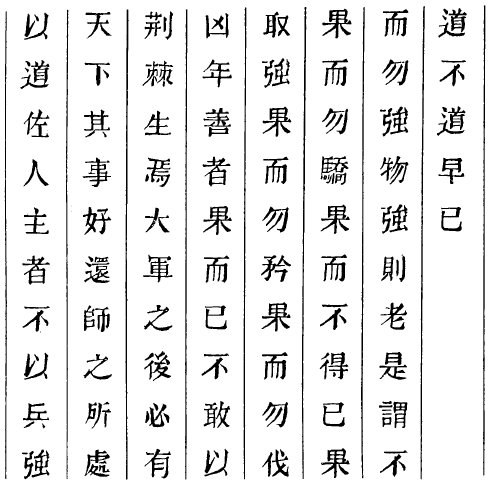 以道佐人主者不以兵強
天下其事好還師之所處
荆棘生焉大軍之後必有
凶年善者果而已不敢以
取強果而勿矜果而勿伐
果而勿驕果而不得已果
而勿強物強則老是謂不
道不道早已